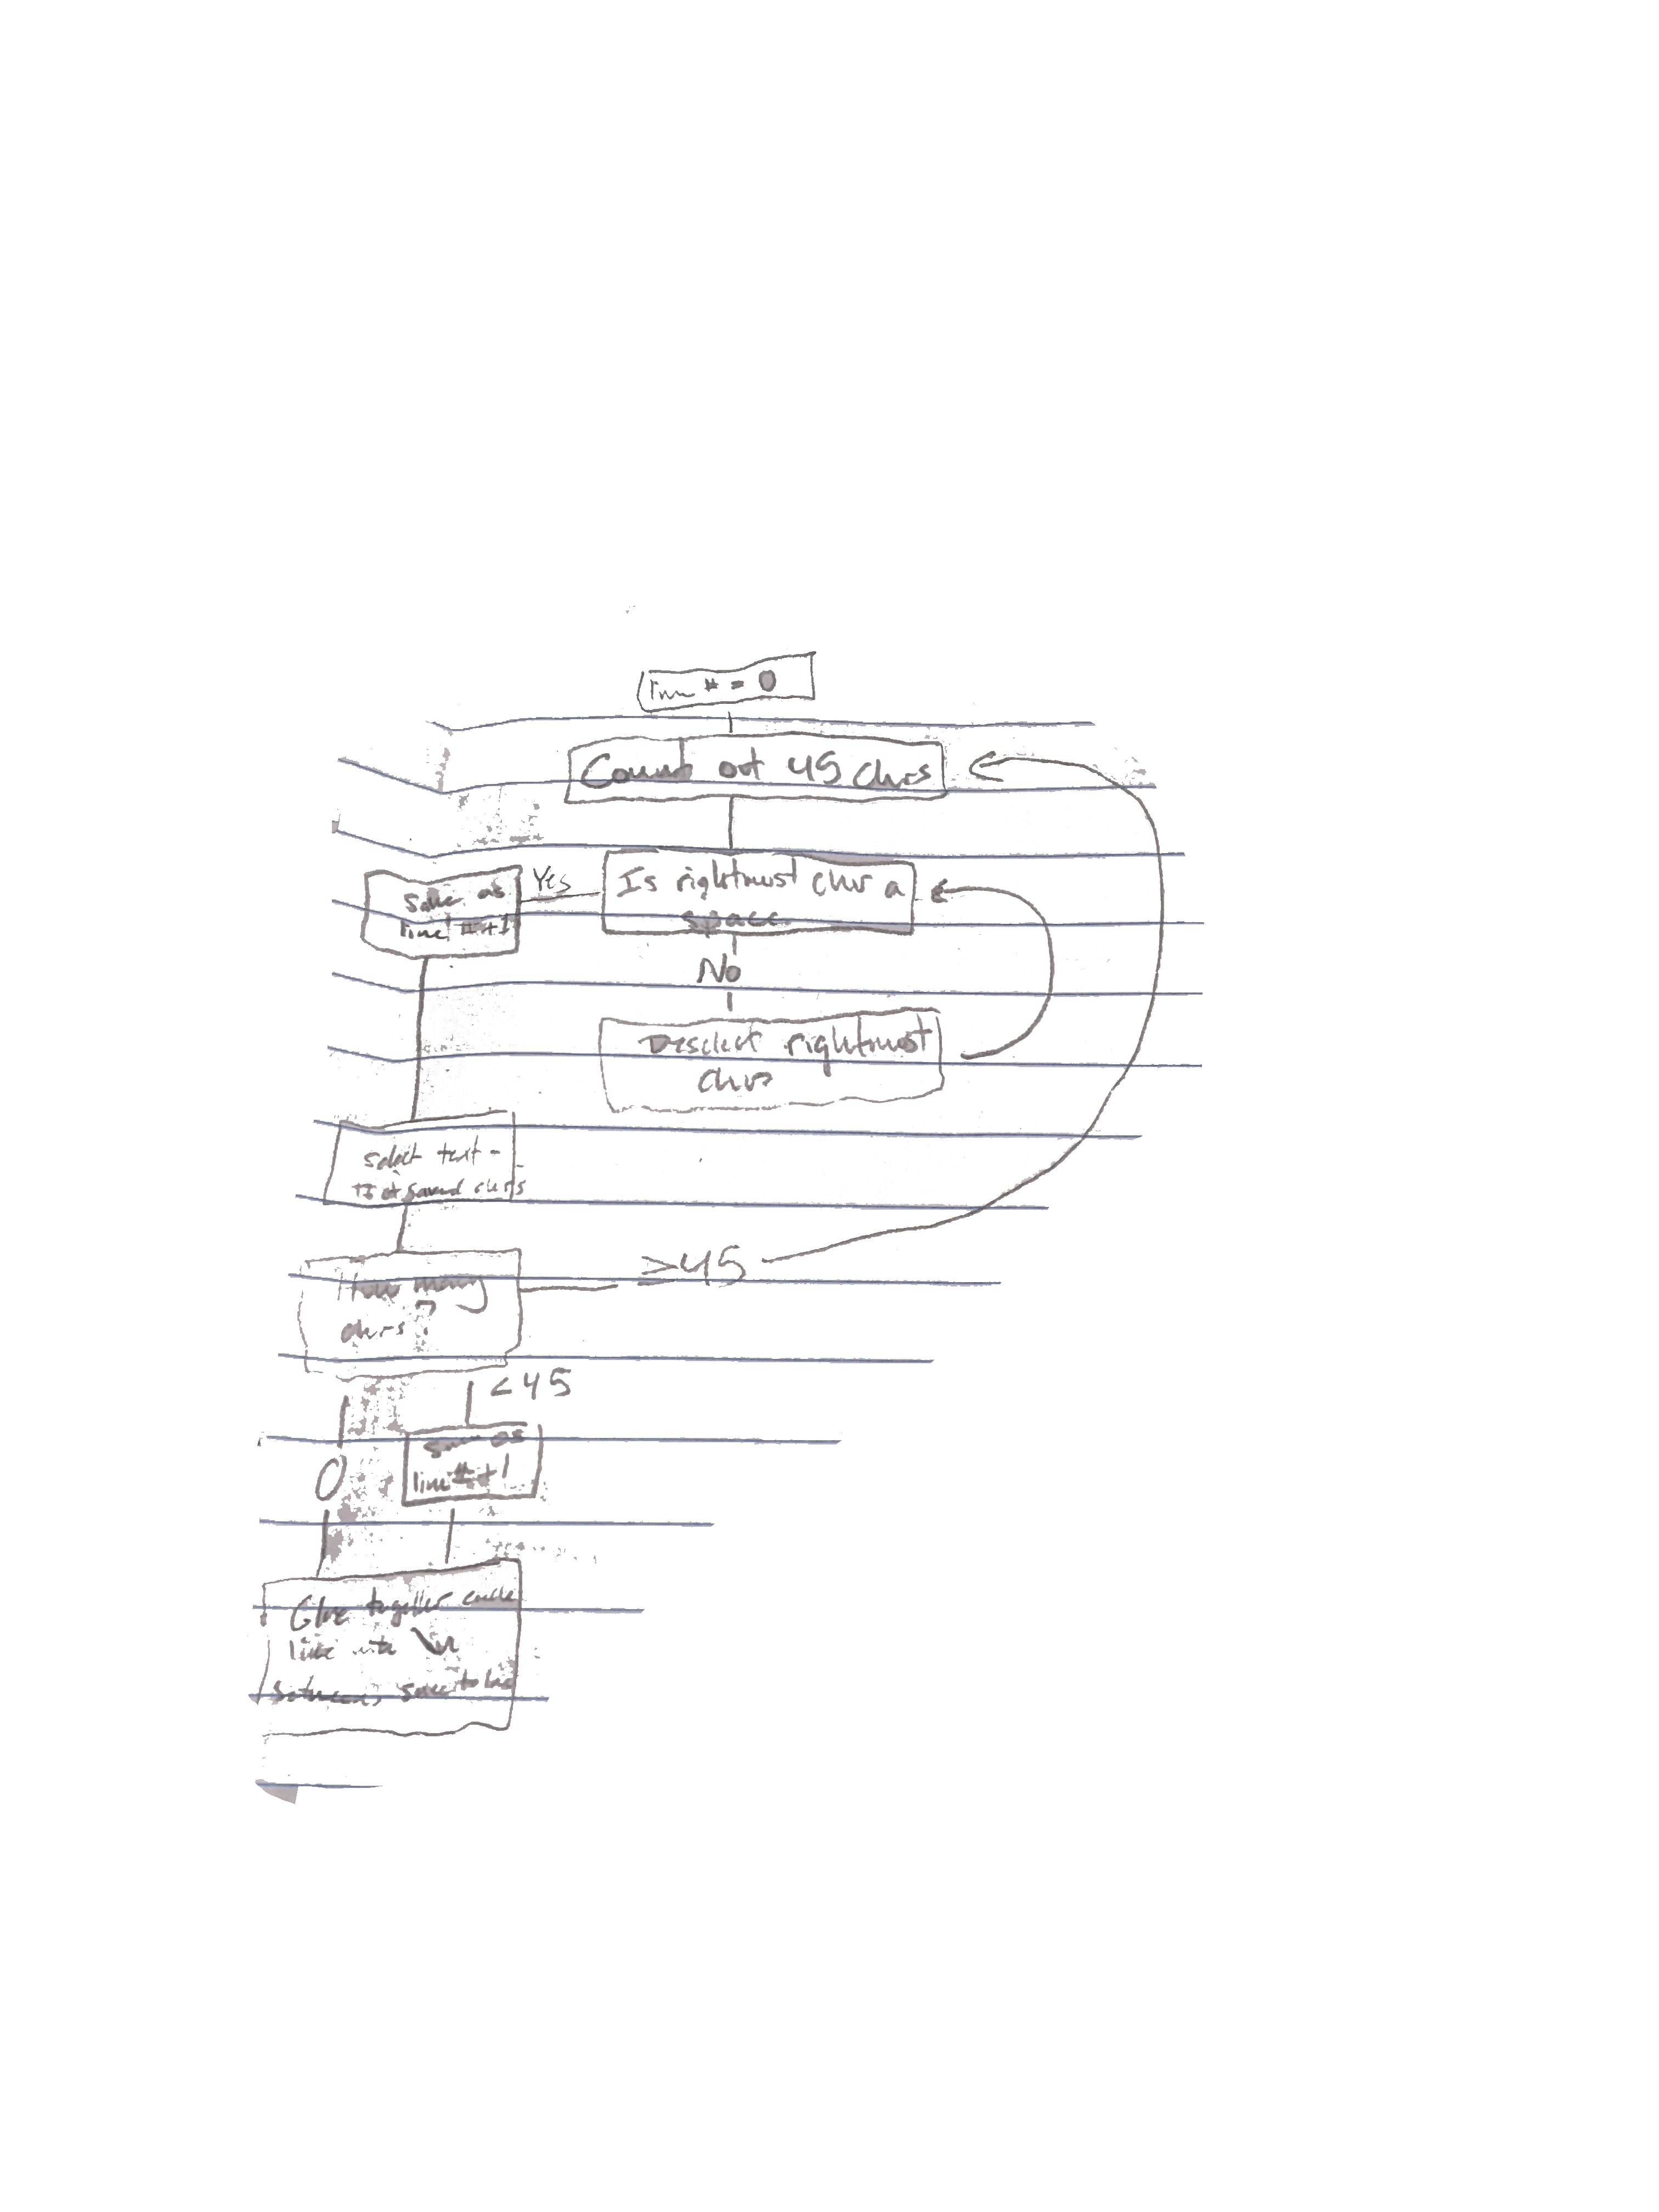 line # = 0
Count out 45 chrs
Is rightmost chr a
space
Yes
Save as
line #+1
No
Deselect rightmost
chr
Select text -
# of saved chrs
≥45
How many
chrs?
<45
0
Save as
line #+1
Glue together
line with \n
between, save to